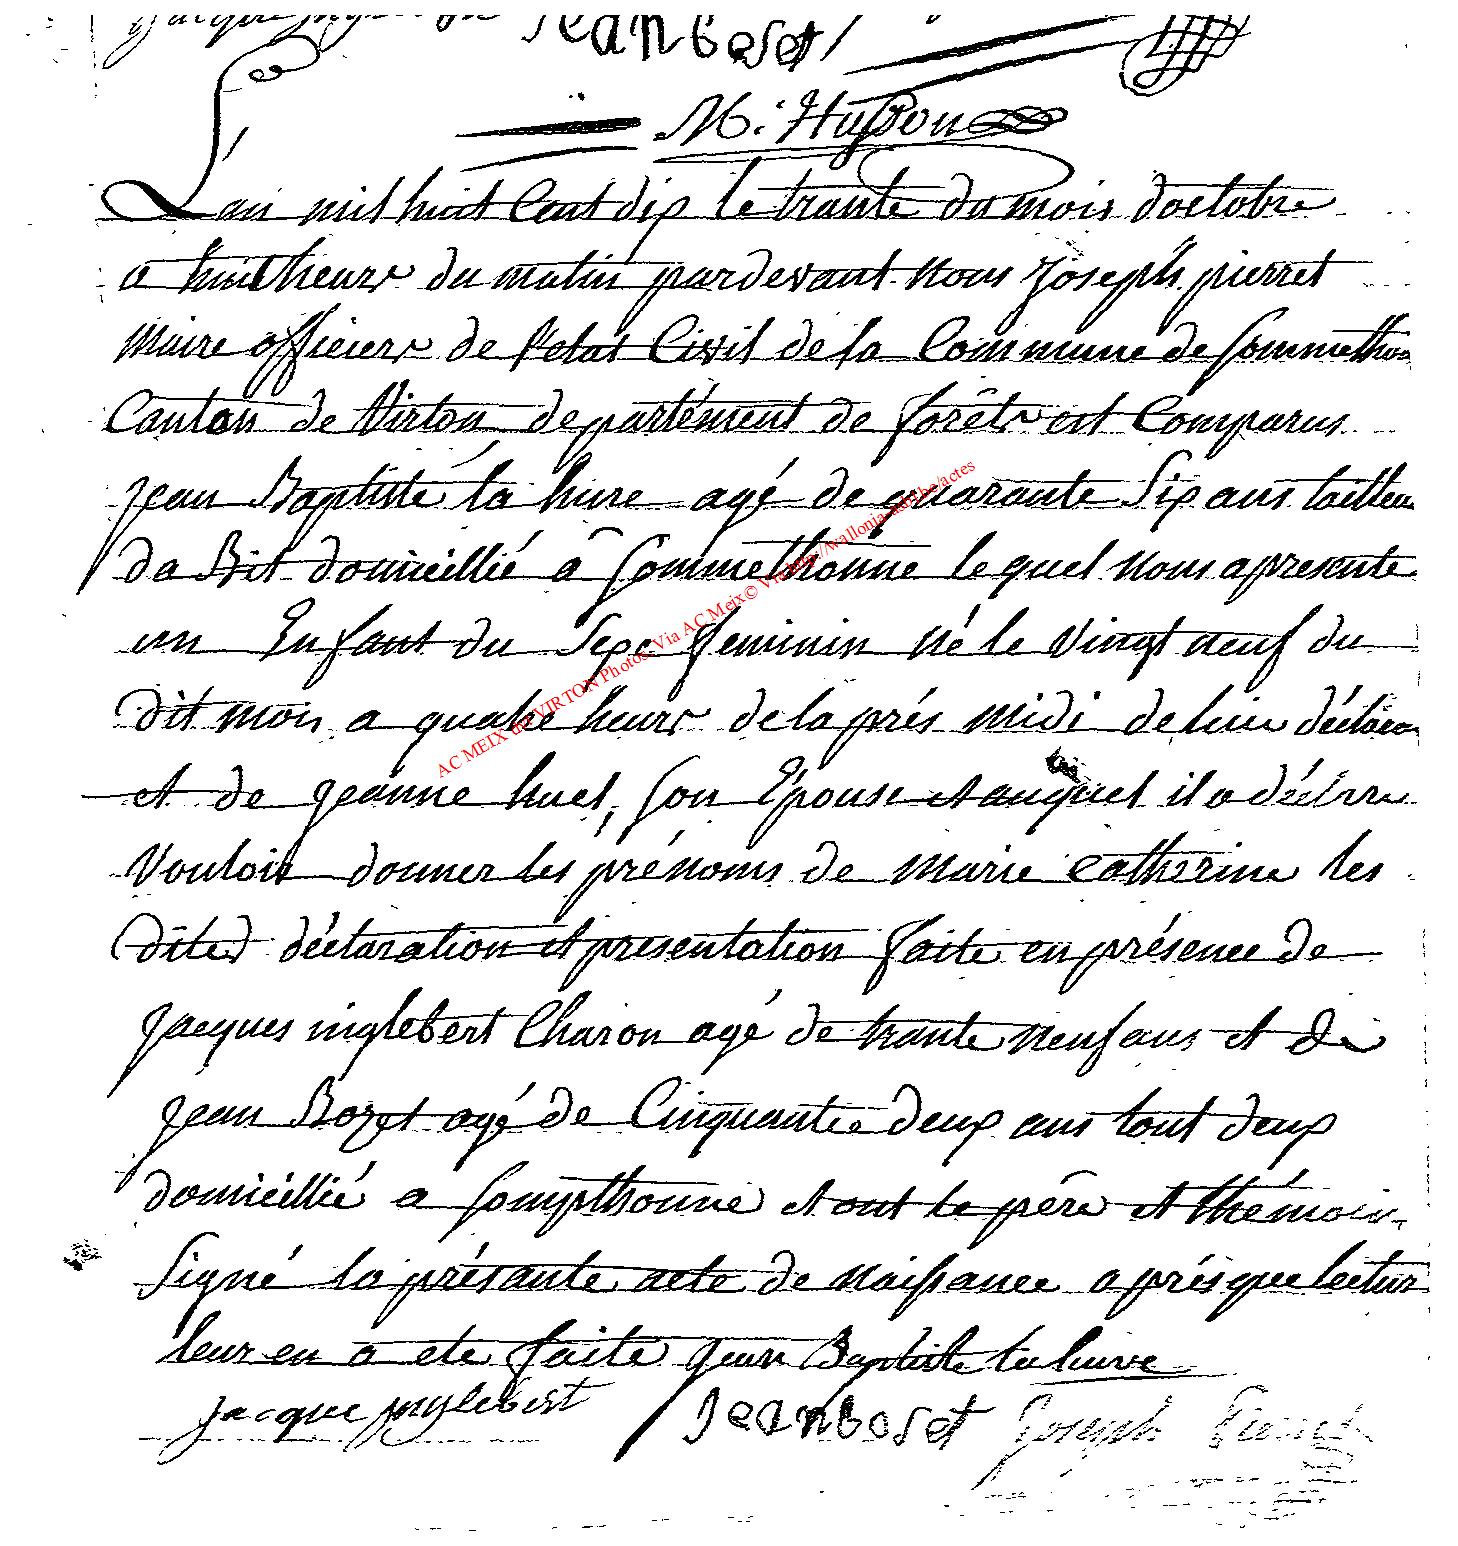 Jean boset
M. Husson
L'an mil huit Cent dix le trante du mois doctobre
a huit heurs du matin pardevant nous Joseph pierret
Maire officiers de l'etat Civil de la Commune de Sommethon
Canton de Virton departément de forêts est Comparus
Jean Baptiste la hure agé de quarante Six ans tailleu
da Bit domicillié a Sommethonne le quel nous a presente
un Enfant du Sexe feminin né le Vingt neuf du
dit mois a quatre heurs de la prés midi de lui déclara
et de jeanne huet, son Épouse et auquel il a déclare
Vouloir donner les prénoms de Marie Catherine les
dites déclaration et presentation faite en présence de
Jacques inglebert Charon agé de trante neuf ans et de
jean Bozet agé de Cinquante deux ans tout deux
domicillié a Sompthonne et ont le père et thémoin
Signé la présante acte de naissance aprés que lectur
leur en a ete faite Jean Baptiste la hurre
jacque jnglebert Jean boset Joseph Pierret
AC MEIX dvt VIRTON Photos Via AC Meix© Via http://wallonia-asbl.be/actes